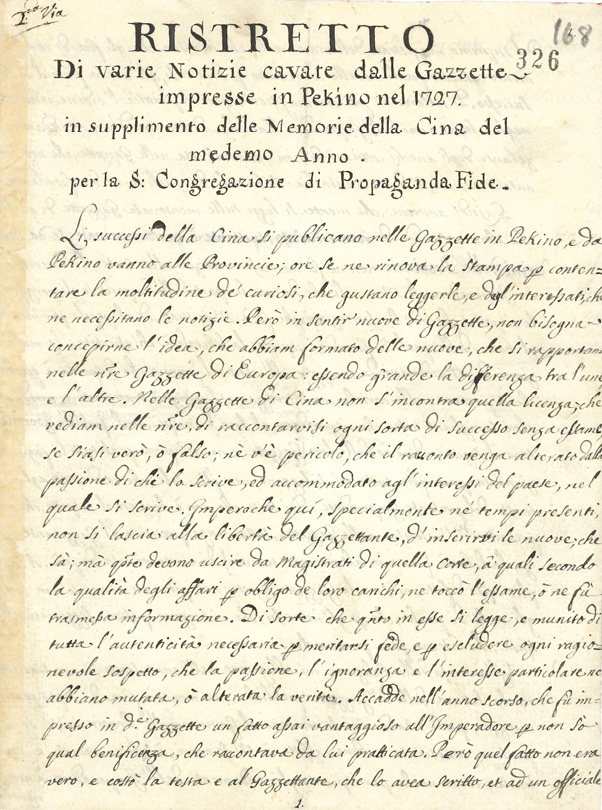 1.ma Via
168
326
RISTRETTO
Di varie Notizie cavate dalle Gazzette
impresse in Pekino nel 1727.
in supplimento delle Memorie della Cina del
medemo Anno.
per la S: Congregazione di Propaganda Fide.
Li successi della Cina si publicano nelle Gazzette in Pekino, e da
Pekino vanno alle Provincie; ove se ne rinova la stampa p conten=
tare la moltitudine de' curiosi, che gustano leggerle, e degl'interessati, che
ne necessitano le notizie. Però in sentir nuove di Gazzette, non bisogna
concepirne l'idea, che abbiam formato delle nuove, che si rapportano
nelle nre Gazzette di Europa: essendo grande la differenza tra l'une
e l'altre. Nelle Gazzette di Cina non s'incontra quella licenza, che
vediam nelle nre, di raccontarvisi ogni sorta di successo senza essame
se siasi verò, ò falso; nè v'è pericolo, che il racconto venga alterato dalla
passione di chi lo scrive, ed accommodato agl'interessi del paese, nel
quale si scrive. Imperoche quì, specialmente ne tempi presenti,
non si lascia alla libertà del Gazzettante, d'inserirvi le nuove, che
sà; mà qste devono uscire da Magistrati di quella Corte, à quali secondo
la qualità degli affari p obligo de loro carichi, ne toccò l'essame, ò ne fù
trasmessa informazione. Di sorte che qnto in esse si legge, e munito di
tutta l'autenticità necessaria p meritarsi fede, e p escludere ogni ragio=
nevole sospetto, che la passione, l'ignoranza e l'interesse particolare ne
abbiano mutata, ò alterata la verità. Accadde nell'anno scorso, che fù im=
presso in d.e Gazzette un fatto assai vantaggioso all'Imperadore p non sò
qual benificenza, che raccontava da lui pratticata. Però quel fatto non era
vero, e costò la testa e al Gazzettante, che lo avea scritto, et ad un officiale
1.